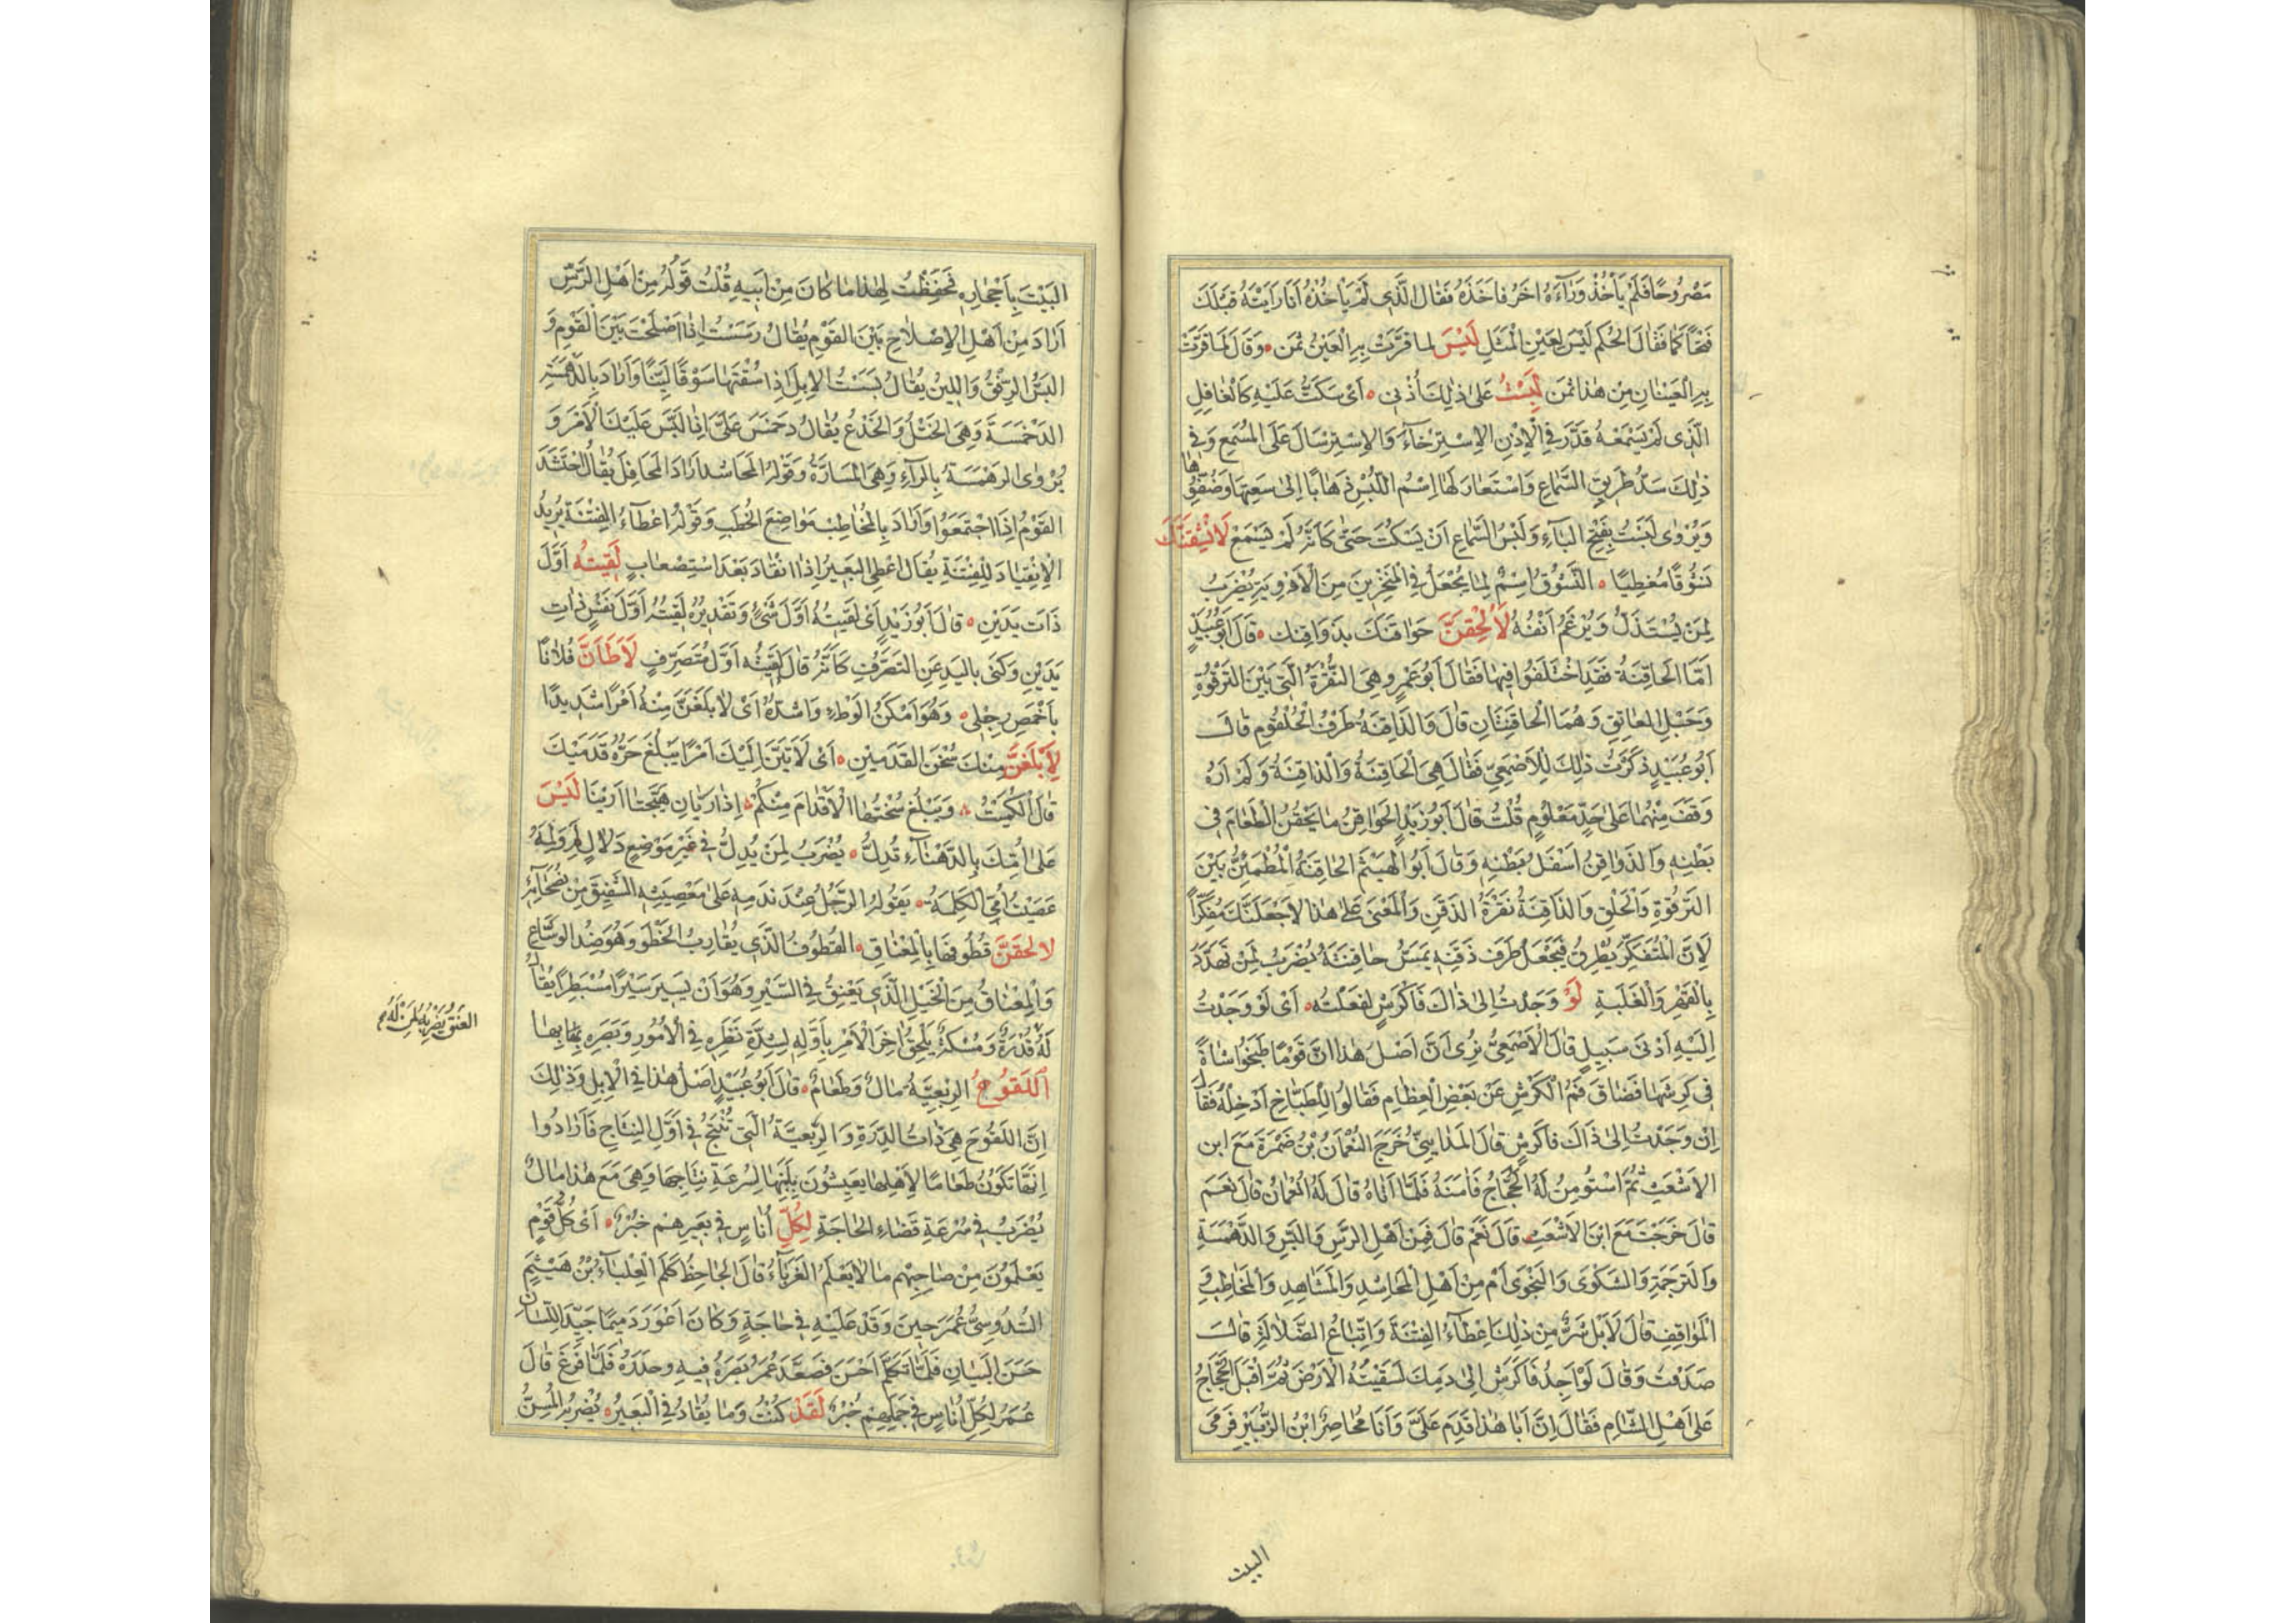 مَصْرُوحًا فَلَمْ يَأْخُذْ وَرَآءَهُ اخَرُ فَاخَذَهُ فَقَالَ الَّذِى لَمْ يَاخُذْهُ اَنَا رَاَيْتُهُ قَبْلَكَ
فَتَحَاكَمَا فَقَالَ الحُكْم لَيْسَ لِعَيْنِ الْمَثَلِ لَيْسَ لما قرَّت بِهِ الْعَيْنُ ثَمَن وَقَالَ لِمَا قَرَّتْ
بِهِ الْعَيْنَانِ مِنْ هٰذا ثَمَن لَبِسْتُ عَلى ذٰلِكَ اُذُنِى اَىْ سَكَتُّ عَلَيْهِ كَالْغَافِلِ
الَّذِى لَمْ يَسْمَعْهُ قَدَّرَ فِى الْاِذْنِ الاِسْتِرْخَآءَ وَالاِسْتِرْسَالَ عَلَى المَسْمَعِ وَفِى
ذٰلِكَ سَدُّ طَرِيقِ السَّمَاعِ وَاسْتَعَارَ لَهَا اِسْمُ اللُّبْسِ ذَهَابًا اِلى سَعَتِهَا وَضُفُوِّهَا
وَيُرْوٰى لَبَسْتُ بِفَتْحِ البَآءِ وَلَبْسُ السَّمَاعِ اَنْ يَسْكُتَ حَتّٰى كَانَّهُ لَمْ يَسْمَعْ لَانْشِقَنَّكَ
نَشُوقًا مُعْطِيًا النَّشُوْقُ اسْمٌ لِمَا يُجْعَلُ فِى الْمَنْخِرَيْنِ مِنَ الْاَدْوِيَةِ يُضْرَبُ
لِمَنْ يُسْتَذَلُّ وَيُرْغَمُ اَنْفُهُ لَاُلْحِقَنَّ حَوَاقَنَكَ بِذَوَاقِنِكَ قَالَ اَبُوعُبَيْدٍ
اَمَّا الحَاقِنَةُ فَقَدِ اخْتَلَفُوا فِيهَا فَقَالَ اَبُو عَمْرٍو هِىَ النُّقْرَةُ الَّتِى بَيْنَ التَّرْقُوَةِ
وَحَبْلِ العَاتِقِ وَهُمَا الْحَاقِنَتَانِ قَالَ وَالذَّاقِنَةُ طَرَفُ الْحُلْقُومِ قَالَ
اَبُوعُبَيْدٍ ذَكَرْتُ ذٰلِكَ لِلْاَصْمَعِىِّ فَقَالَ هِىَ الْحَاقِنَةُ وَالْذَاقِنَةُ وَلَمْ اَرَهُ
وَقَفَ مِنْهُمَا عَلى حَدٍّ مَعْلُومٍ قُلْتُ قَالَ اَبُوزَيْدٍ الْحَوَاقِنُ مَا يَحْقُنُ الطَّعَامَ فِى
بَطْنِهِ وَالذَوَاقِنُ اَسْفَلُ بَطْنِهِ وَقَالَ اَبُوالْهَيْثَمِ الحَاقِنَةُ الْمُطْمَئِنُّ بَيْنَ
التَرْقُوَةِ وَالْحَلْقِ وَالذَاقِنَةُ نُقْرَةُ الذَقَنِ وَالْمَعْنٰى عَلى هٰذَا لَاَجْعَلَنَّكَ مُفَكِّرًا
لِاَنَّ الْمُتَفَكِّرَ يُطْرِقُ فَيَجْعَلُ طَرَف ذَقَنِه يَمَسُّ حَاقِنَتَهُ يُضْرَبُ لِمَنْ تَهَدَّدُ
بِالْقَهْرِ وَالْغَلَبَةِ لَوْ وَجَدْتُ اِلىٰ ذَاكَ فَاكَرِشٍ لَفَعَلْتُهُ اَىْ لَوْ وَجَدْتُ
اِلَيْهِ اَدْنَى سَبِيلٍ قَالَ الْاَصْمَعِىُّ نُرٰى اَنَّ اَصْلَ هٰذَا اَنَّ قَوْمًا طَبَخُوا شَاةً
فِى كَرِشِهَا فَضَاقَ فَمُ الْكَرْشِ عَنْ بَعْضِ الْعِظَامِ فَقَالُوا لِلطَّبَّاخِ اَدْخِلْهُ فَقَالَ
اِنْ وَجَدْتُ اِلىٰ ذَاكَ فَاكَرِشٍ قَالَ المَدَايِنِىُّ خَرَجَ النُعْمَانُ بْنُ ضَمْرَةَ مَعَ ابن
الاَشْعَثِ ثُمَّ اسْتُؤْمِنَ لَهُ الْحَجَّاجُ فَامَنَهُ فَلَمَّا اَتَاهُ قَالَ لَهُ النُعْمَانُ قَالَ نَعَم
قَالَ خَرَجْتَ مَعَ ابْنِ الاَشْعَثِ قَالَ نَعَمْ قَالَ فَمِنْ اَهْلِ الرَّسِّ وَالْبَسِّ وَالدَّهْمَسَةِ
وَالتَّرْجَمَةِ وَالشَكْوَى وَالنَّجْوَى اَمْ مِنْ اَهْلِ الْمَحَاشِدِ وَالْمَشَاهِدِ وَالْمَخَاطِبِ فِى
الْمَوَاقِفِ قَالَ لَا بَلْ شَرٌّ مِنْ ذٰلِكَ اِعْطَآءُ الفِتْنَةَ وَاتِّبَاعُ الضَّلَالَةِ قَالَ
صَدَقْتَ وَقَالَ لَوْ اَجِدُ فَاكَرِشٍ اِلى دَمِكَ لَسَقَيْتُهُ الْاَرْضَ ثُمَّ اَقْبَلَ الْحَجَّاجُ
عَلى اَهْلِ الشَّامِ فَقَالَ اِنَّ اَبَا هٰذَا قَدِمَ عَلَىَّ وَاَنَا مُحَاصِرُ ابْنِ الزُّبَيْرِ فَرَمَى
البيت
البَيْتَ بِاَحْجَارِهِ فَحَفِظْتُ لِهٰذا مَا كَانَ مِنْ اَبِيهِ قُلْتُ قَوْلُهُ مِنْ اَهْلِ الرَّسِّ
اَرَادَ مِنْ اَهْلِ الاِصْلَاحِ بَيْنَ القَوْمِ يُقَالُ رَسَسْتُ اِذَا اَصْلَحْتَ بَيْنَ الْقَوْمِ وَ
البَسُّ الرِّفْقُ وَاللِينُ يُقَالُ بَسَسْتُ الاِبِلَ اِذَا سُقْتَهَا سَوْقًا لَيِّنًا وَاَرَادَ بِالدَّهْمَسَةِ
الدَخْمَسَةَ وَهِىَ الخَتْلُ وَالخَدْعُ يُقَالُ دَخْمَسَ عَلَىَّ اِذَا لَبَّسَ عَلَيْكَ الْاَمْرَ وَ
يُرْوٰى الرَهْمَسَةُ بِالرَآءِ وَهِىَ المُسَارَّةُ وَقَوْلُهُ المَحَاشِد اَرَادَ المَحَافِلَ يُقَالُ احْتَشَدَ
القَوْمُ اِذَا اجْتَمَعُوا وَاَرَادَ بِالْمَخَاطِبِ مَوَاضِعَ الخُطَبِ وَقَوْلُهُ اِعْطَآءُ الفِتْنَةِ يُرِيدُ
الْاِنْقِيَادَ لِلْفِتْنَةِ يُقَالُ اَعْطٰى البَعِيْرُ اِذَا انْقَادَ بَعْدَ اسْتِصْعَابٍ لَقِيتُهُ اَوَّلَ
ذَاتَ يَدَيْنِ قَالَ اَبُو زَيْدٍ اَىْ لَقِيْتُهُ اَوَّلَ شَىْءٍ وَتَقْدِيرُهُ لَقِيتُهُ اَوَّلَ نَفْسٍ ذَاتِ
يَدَيْنِ وَكَنٰى بِاليَدِ عَنِ التَصَرُّفِ كَاَنَّهُ قَالَ لَقِيتُهُ اَوَّلَ مُتَصَرِّفٍ لَاَطَاَنَّ فُلَانًا
بِاَخْمَصِ رِجْلِى وَهُوَ اَمْكَنُ الْوَطْءِ وَاَشَدُّهُ اَىْ لَابْلَغَنَّ مِنْهُ اَمْرًا شَدِيدًا
لَاَبْلَغَنَّ مِنْكَ سُخْنَ القَدَمَيْنِ اَىْ لَاٰتِيَنَّ اِلَيْكَ اَمْرًا يَبْلُغُ حَرُّهُ قَدَمَيْكَ
قَالَ الكُمَيْتُ وَيَبْلُغُ سُخْنُهَا الْاَقْدَامَ مِنْكُمْ اِذَا اَرَتَانِ هَيَّجَتَا اَرِيْنَا لَيْسَ
عَلىٰ اُمِّكَ بِالدَّهْنَآءِ تُدِلُّ يُضْرَبُ لِمَنْ يُدِلُّ فِى غَيْرِ مَوْضِعِ دَلَالٍ
عَصَيْتُ اُمِّىَ الكَلِمَةَ يَقُولُهُ الرَّجُلُ عِنْدَ نَدَمِهِ عَلىٰ مَعْصِيَةِ الشَّفِيْقِ مِنْ نُصَحَآئِهِ
لالحقَنَّ قُطُوفَهَا بِالْمِعْنَاقِ القَطُوفُ الَّذِى يُقَارِبُ الخَطْوَ وَهُوَ ضِدُّ الوَسَاعِ
وَالْمِعْنَاقُ مِنَ الخَيْلِ الَّذِى يَعْنِقُ فِى السَّيْرِ وَهُوَ اَنْ يَسِيرَ سَيْرًا مُسْبَطِرًا يُقَالُ
لَهُ قُدْرَةٌ وَمُسْكَةٌ يَلْحِقُ اٰخِرَ الْاَمْرِ بِاَوَّلِهِ لِشِدَّةِ نَظَرِهِ فِى الْاُمُورِ وَبَصَرِهِ بِهَا
العَنَقُ يُضْرَبُ لِمَنْ لَهُ
اَللَقُوحُ الرِبْعِيَّةُ مَالٌ وَطَعَامٌ قَالَ اَبُو عُبَيْدٍ اَصْلُ هٰذَا فِى الْاِبِلِ وَذٰلِكَ
اِنَّ اللَقُوحَ هِىَ ذَاتُ الدِّرَةِ وَالرِبْعيَّةُ الَّتِى تُنْتَجُ فِى اَوَّلِ النِتَاجِ فَاَرَادُوا
اِنَّهَا تَكُونُ طَعَامًا لِاَهْلِهَا يَعِيشُونَ بِلَبَنِهَا لِسُرْعَةِ نِتَاجِهَا وَهِىَ مَعَ هٰذَا مَالٌ
يُضْرَبُ فِى سُرْعَةِ قَضَاءِ الحَاجَةِ لِكُلِّ اُنَاسٍ فِى بَعِيرِهِمْ خَبَرٌ اَىْ كُلُّ قَوْمٍ
يَعْلَمُونَ مِنْ صَاحِبِهِمْ مَا لَا يَعْلَمُ الغُرَبَآءُ قَالَ الْجَاحِظُ كَلَّمَ العِلْبَآءُ بْنُ هَيْثَمٍ
السَّدُوسِىُّ عُمَرَ حِينَ وَفَدَ عَلَيْهِ فِى حَاجَةٍ وَكَانَ اَعْوَرَ دَمِيمًا جَيِّدَ اللِّسَانِ
حَسَنَ الْبَيَانِ فَلَمَّا تَكَلَّمَ اَحْسَنَ فَصَعَّدَ عُمَرُ بَصَرَهُ فِيهِ وحَدَرَهُ فَلَمَّا فَرَغَ قَالَ
عُمَرُ لِكُلِّ اُنَاسٍ فِى جَمَلِهِمْ خُبْرٌ لَقَدْ كُنْتُ وَمَا يُقَادُ فِى الْبَعِيْرُ يُضْرَبُ لِلْمُسِنِّ